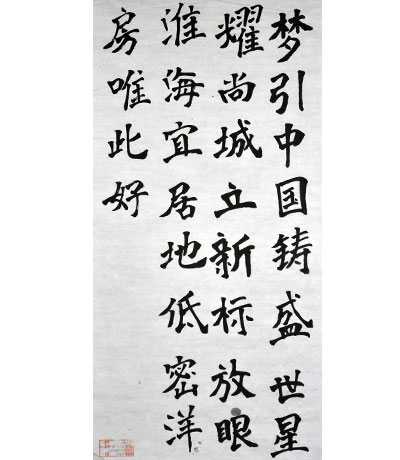 梦引中国铸盛世星
耀尚城立新标放眼
淮海宜居地低密洋
房唯此好